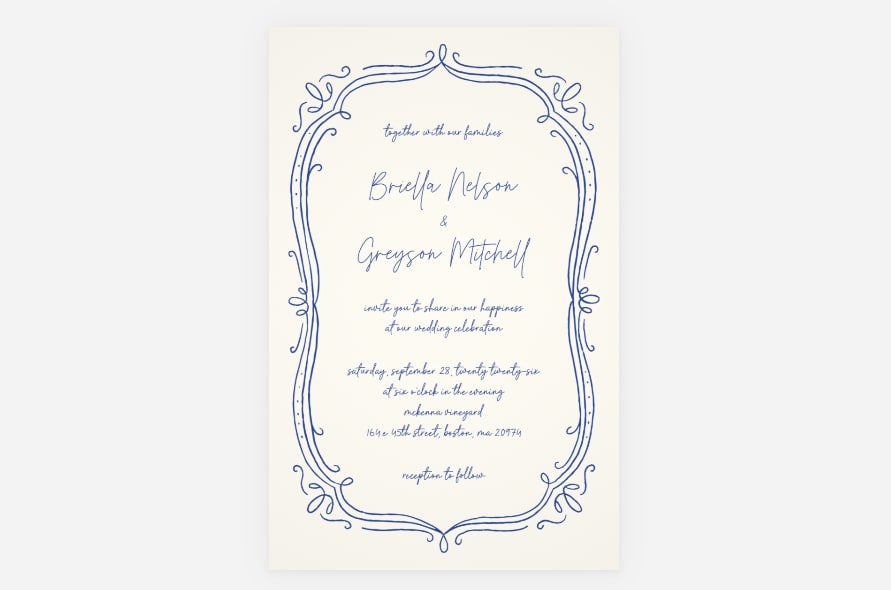 together with our families
Briella Nelson
&
Greyson Mitchell
invite you to share in our happiness
at our wedding celebration
saturday, september 28, twenty twenty-six
at six o'clock in the evening
mckenna vineyard
164 e 45th street, boston, ma 20974
reception to follow